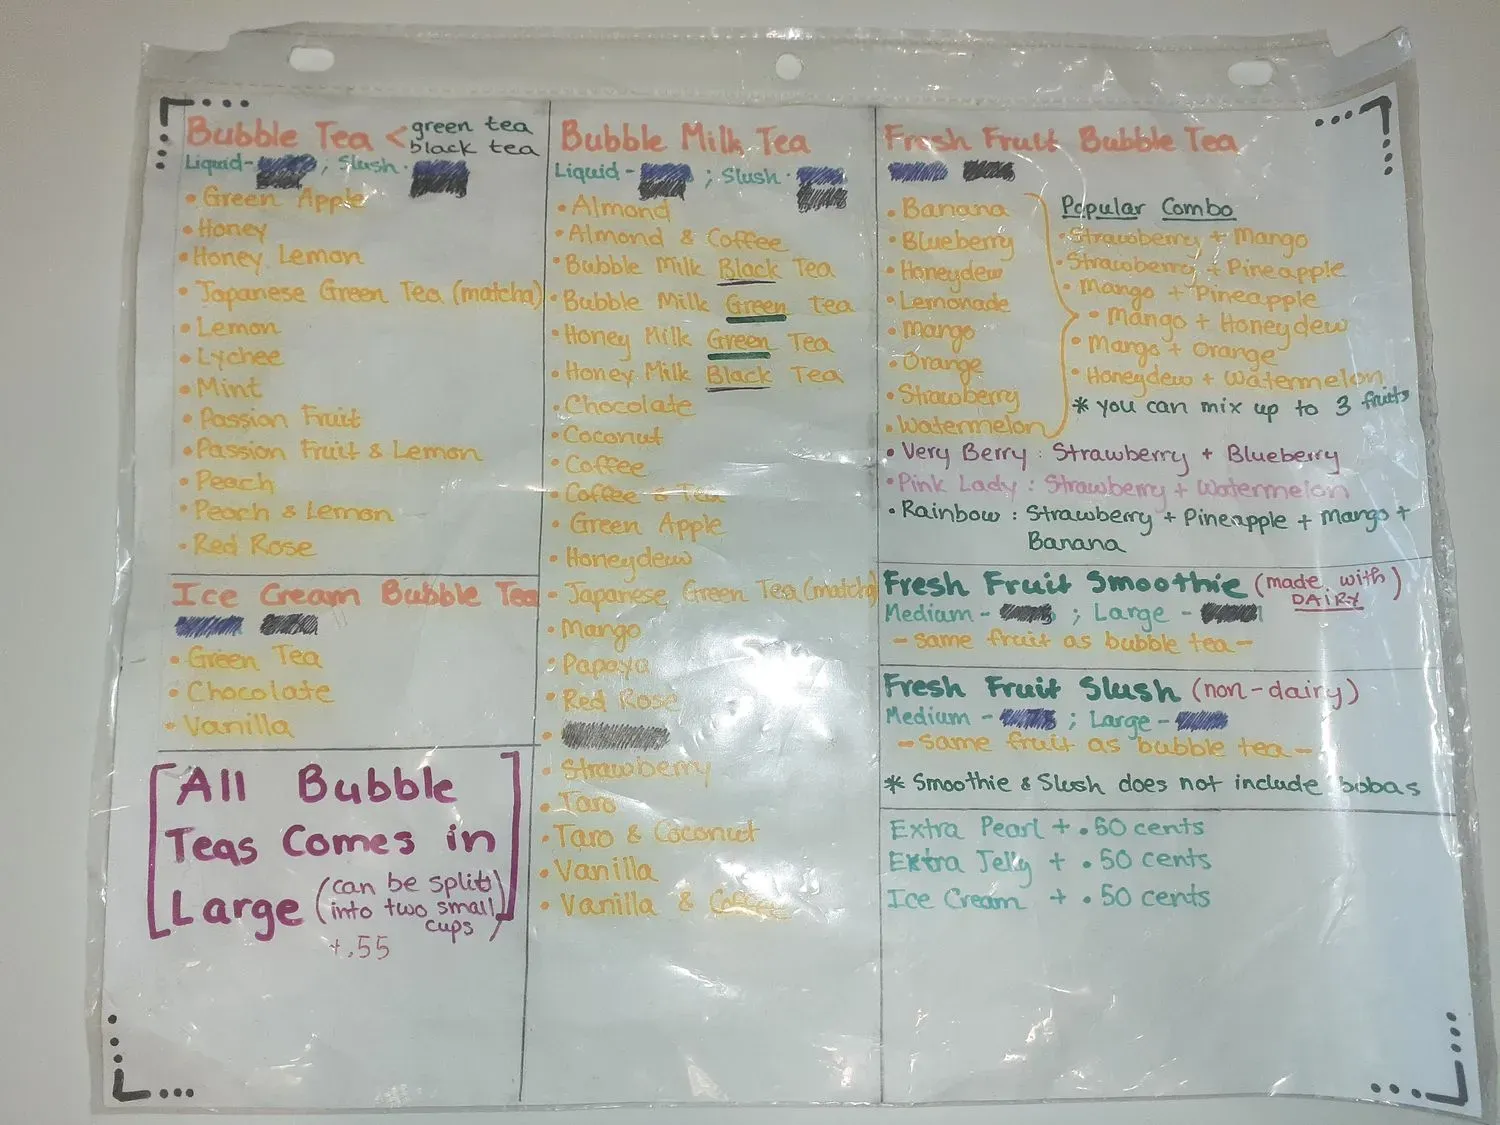 Bubble Tea < green tea
black tea
Liquid- ; Slush -
• Green Apple
• Honey
• Honey Lemon
• Japanese Green Tea (matcha)
• Lemon
• Lychee
• Mint
• Passion Fruit
• Passion Fruit & Lemon
• Peach
• Peach & Lemon
• Red Rose
Ice Cream Bubble Tea
• Green Tea
• Chocolate
• Vanilla
[All Bubble
Teas Comes in
Large (can be split
into two small
cups)]
+.55
Bubble Milk Tea
Liquid - ; Slush -
• Almond
• Almond & Coffee
• Bubble Milk Black Tea
• Bubble Milk Green tea
• Honey Milk Green Tea
• Honey Milk Black Tea
• Chocolate
• Coconut
• Coffee
• Coffee & Tea
• Green Apple
• Honeydew
• Japanese Green Tea (matcha)
• Mango
• Papaya
• Red Rose
•
• Strawberry
• Taro
• Taro & Coconut
• Vanilla
• Vanilla & Coffee
Fresh Fruit Bubble Tea
• Banana
• Blueberry
• Honeydew
• Lemonade
• Mango
• Orange
• Strawberry
• Watermelon
Popular Combo
• Strawberry + Mango
• Strawberry + Pineapple
• Mango + Pineapple
• Mango + Honeydew
• Mango + Orange
• Honeydew + Watermelon
* you can mix up to 3 fruits
• Very Berry : Strawberry + Blueberry
• Pink Lady : Strawberry + Watermelon
• Rainbow : Strawberry + Pineapple + Mango +
Banana
Fresh Fruit Smoothie (made with
DAIRY)
Medium - ; Large -
- same fruit as bubble tea -
Fresh Fruit Slush (non-dairy)
Medium - ; Large -
- same fruit as bubble tea -
* Smoothie & Slush does not include bobas
Extra Pearl + .50 cents
Extra Jelly + .50 cents
Ice Cream + .50 cents